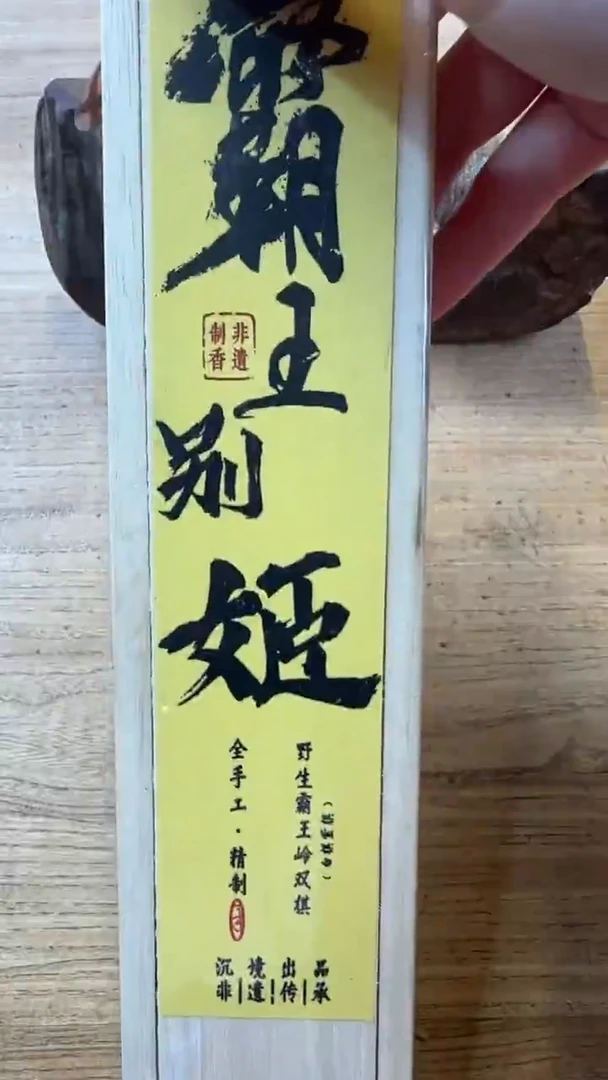 霸王别姬
非遺
制香
野生霸王岭双棋
全手工·精制
沉境出品
非遺传承